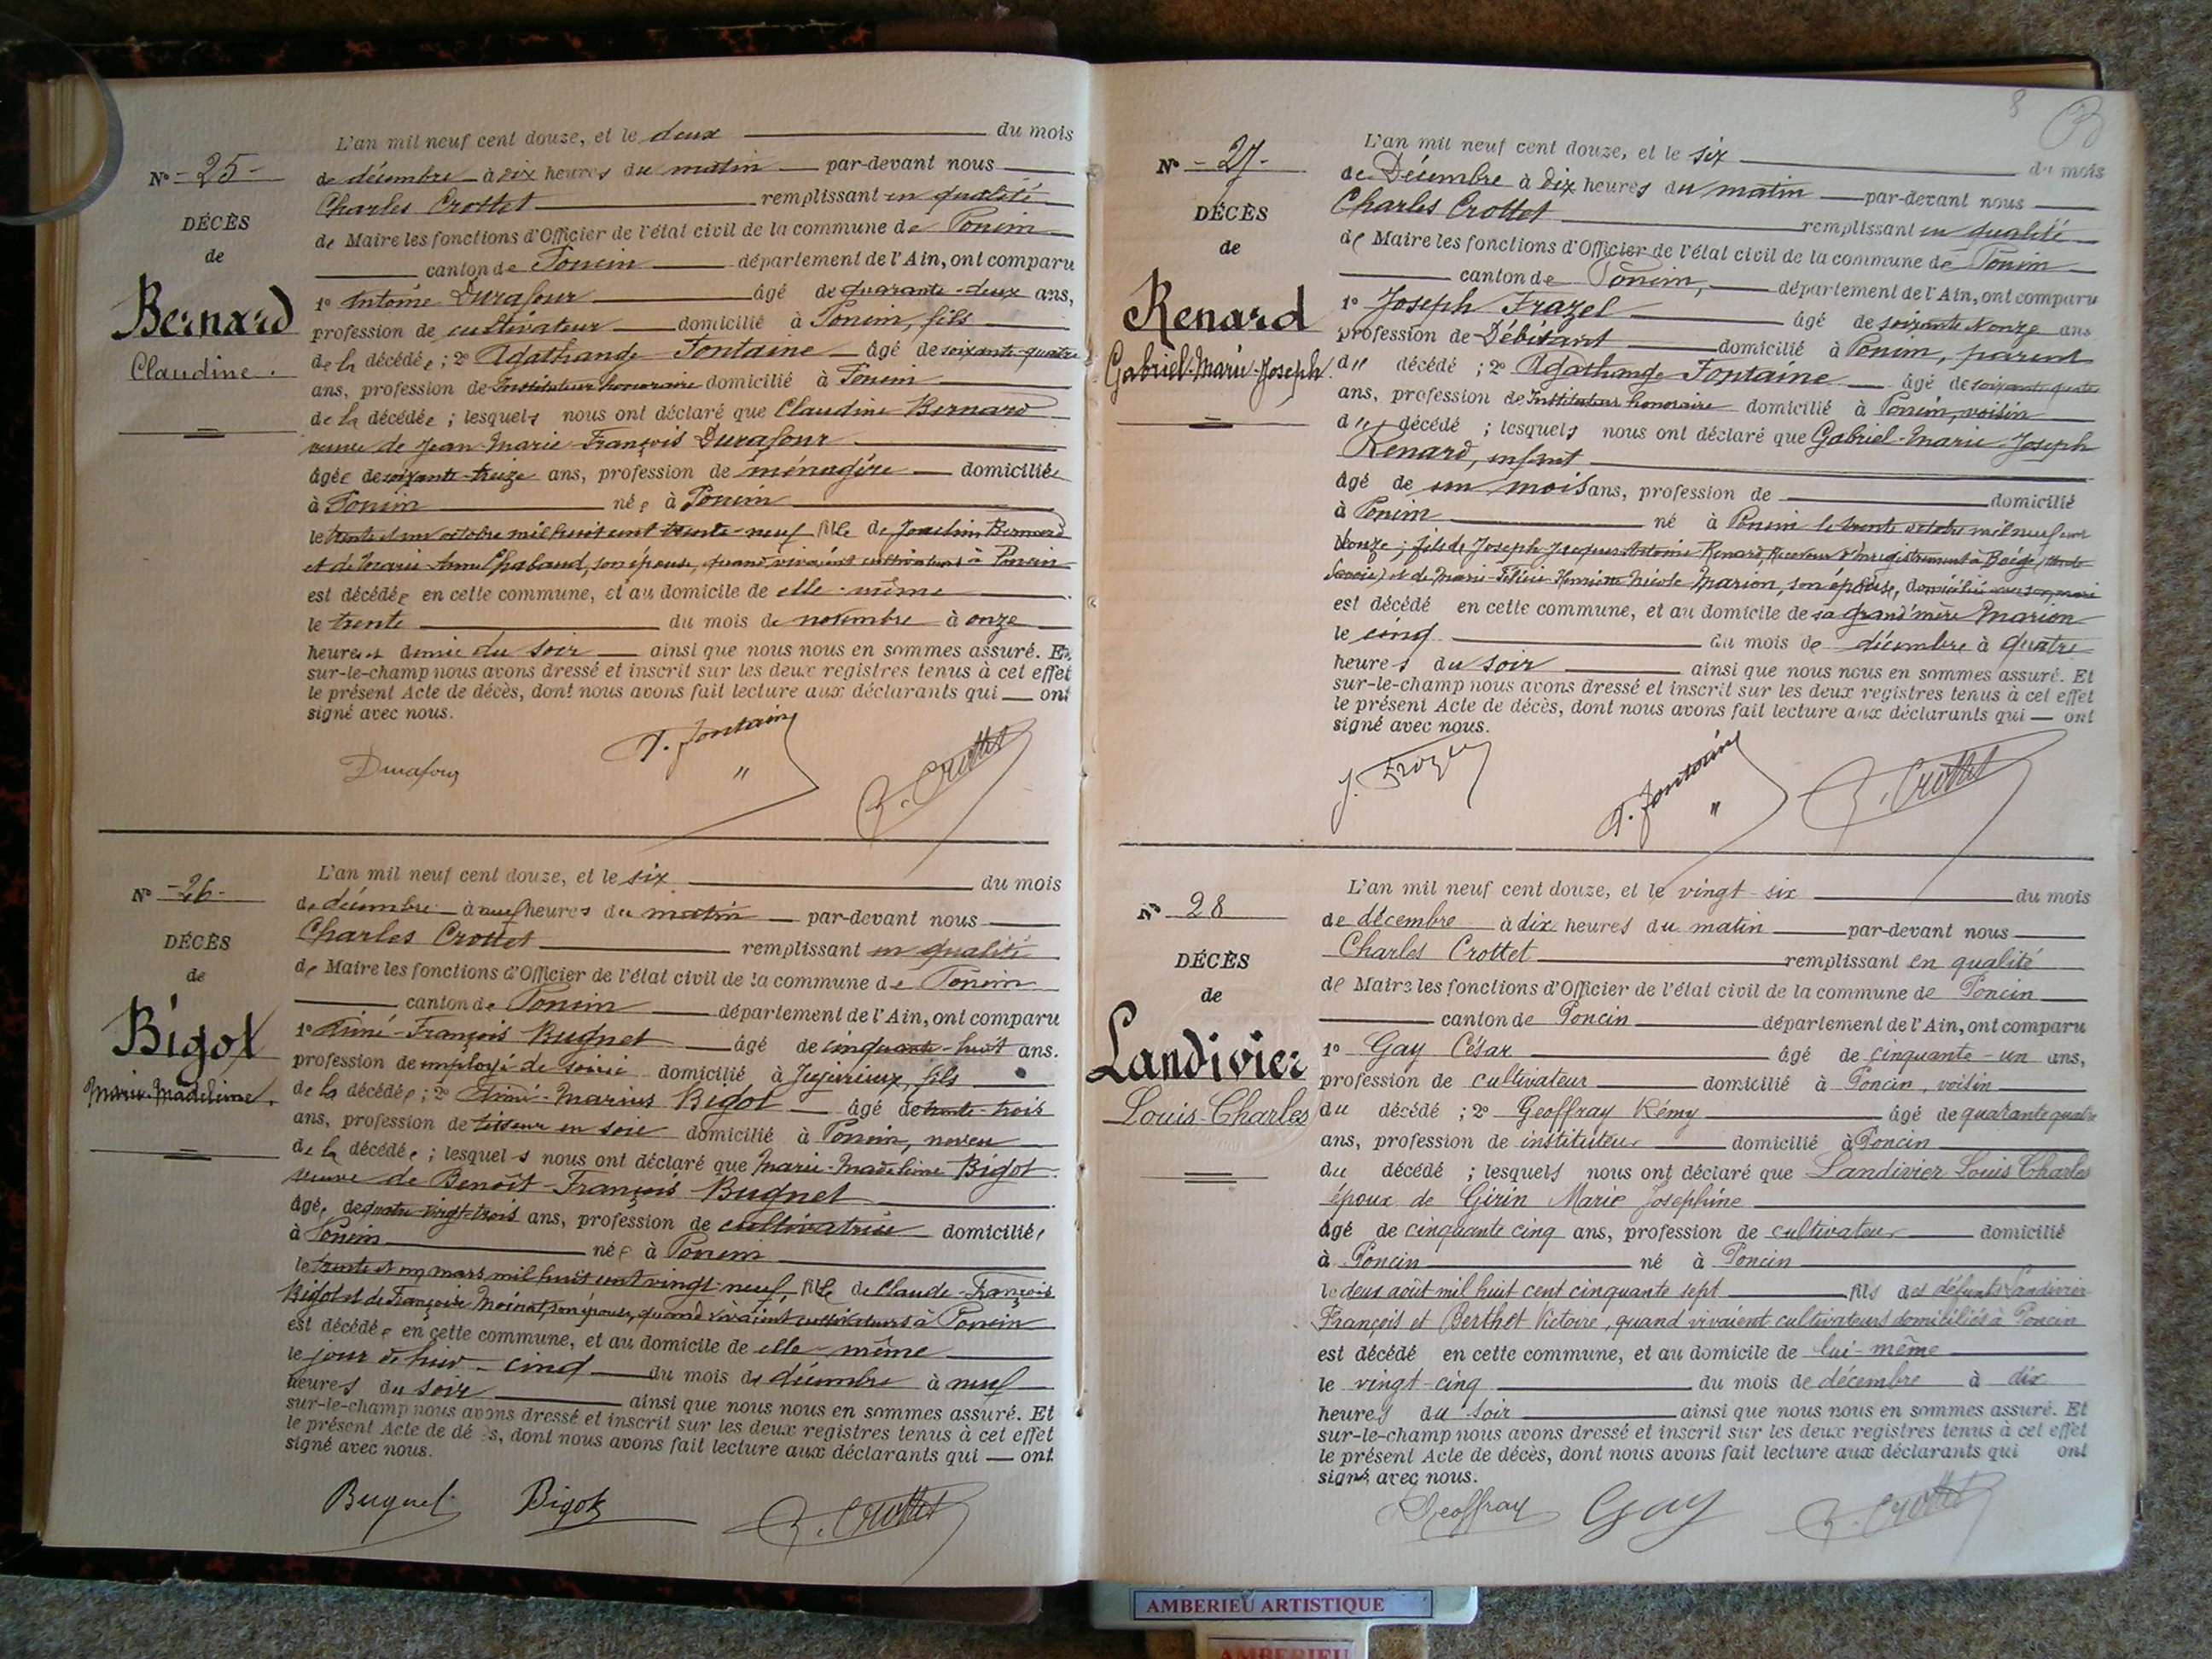 L'an mil neuf cent douze, et le deux du mois
N° - 25 -
de décembre à dix heures du matin par-devant nous
Charles Crottet remplissant en qualité
DÉCÈS
de Maire les fonctions d'Officier de l'état civil de la commune de Poncin
de
canton de Poncin département de l'Ain, ont comparu
Bernard
Claudine.
1° Antoine Durafour âgé de quarante-deux ans,
profession de cultivateur domicilié à Poncin, fils
de la décédée ; 2° Agathange Fontaine âgé de soixante-quatre
ans, profession de Instituteur honoraire domicilié à Poncin
de la décédée ; lesquels nous ont déclaré que Claudine Bernard
veuve de Jean-Marie François Durafour
âgée de soixante-treize ans, profession de ménagère domiciliée
à Poncin née à Poncin
le trente et un octobre mil huit cent trente-neuf fille de Joachim Bernard
et de Marie Anne Chabaud, son épouse, quand vivaient cultivateurs à Poncin
est décédée en cette commune, et au domicile de elle-même
le trente du mois de novembre à onze
heures et demie du soir ainsi que nous nous en sommes assuré. Et
sur-le-champ nous avons dressé et inscrit sur les deux registres tenus à cet effet
le présent Acte de décès, dont nous avons fait lecture aux déclarants qui ont
signé avec nous.
Durafour A. Fontaine C. Crottet
L'an mil neuf cent douze, et le six du mois
N° - 26 -
de décembre à neuf heures du matin par-devant nous
Charles Crottet remplissant en qualité
DÉCÈS
de Maire les fonctions d'Officier de l'état civil de la commune de Poncin
de
canton de Poncin département de l'Ain, ont comparu
Bigot
Marie-Madeleine.
1° Aimé-François Bugnet âgé de cinquante-huit ans.
profession de employé de soierie domicilié à Jujurieux, fils
de la décédée ; 2° Aimé-Marius Bigot âgé de trente-trois
ans, profession de tisseur en soie domicilié à Poncin, neveu
de la décédée ; lesquels nous ont déclaré que Marie-Madeleine Bigot
veuve de Benoît-François Bugnet
âgée de quatre-vingt-trois ans, profession de cultivatrice domiciliée
à Poncin née à Poncin
le trente et un mars mil huit cent vingt-neuf, fille de Claude-François
Bigot et de Françoise Moinat, son épouse, quand vivaient cultivateurs à Poncin
est décédée en cette commune, et au domicile de elle-même
le jour d'hier - cinq du mois de décembre à neuf
heures du soir ainsi que nous nous en sommes assuré. Et
sur-le-champ nous avons dressé et inscrit sur les deux registres tenus à cet effet
le présent Acte de décès, dont nous avons fait lecture aux déclarants qui ont
signé avec nous.
Bugnet Bigot C. Crottet
8
L'an mil neuf cent douze, et le six du mois
N° - 27 -
de Décembre à dix heures du matin par-devant nous
Charles Crottet remplissant en qualité
DÉCÈS
de Maire les fonctions d'Officier de l'état civil de la commune de Poncin
de
canton de Poncin, département de l'Ain, ont comparu
Renard
Gabriel-Marie-Joseph
1° Joseph Frazel âgé de soixante et onze ans
profession de Débitant domicilié à Poncin, parent
du décédé ; 2° Agathange Fontaine âgé de soixante-quatre
ans, profession de Instituteur honoraire domicilié à Poncin, voisin
du décédé ; lesquels nous ont déclaré que Gabriel-Marie-Joseph
Renard, enfant
âgé de un mois ans, profession de domicilié
à Poncin né à Poncin le trente octobre mil neuf cent
douze ; fils de Joseph Jacques Antoine Renard, Receveur d'Enregistrement à Boëge (Haute
Savoie) et de Marie-Félicie Henriette Nicole Marion, son épouse, domiciliée avec son mari
est décédé en cette commune, et au domicile de sa grand'mère Marion
le cinq du mois de décembre à quatre
heures du soir ainsi que nous nous en sommes assuré. Et
sur-le-champ nous avons dressé et inscrit sur les deux registres tenus à cet effet
le présent Acte de décès, dont nous avons fait lecture aux déclarants qui ont
signé avec nous.
A. Fontaine C. Crottet
L'an mil neuf cent douze, et le vingt-six du mois
N° 28
de décembre à dix heures du matin par-devant nous
Charles Crottet remplissant en qualité
DÉCÈS
de Maire les fonctions d'Officier de l'état civil de la commune de Poncin
de
canton de Poncin département de l'Ain, ont comparu
Landivier
Louis-Charles
1° Gay César âgé de cinquante-un ans,
profession de cultivateur domicilié à Poncin, voisin
du décédé ; 2° Geoffray Rémy âgé de quarante quatre
ans, profession de instituteur domicilié à Poncin
du décédé ; lesquels nous ont déclaré que Landivier Louis Charles
époux de Girin Marie Josephine
âgé de cinquante cinq ans, profession de cultivateur domicilié
à Poncin né à Poncin
le deux août mil huit cent cinquante sept fils des défunts Landivier
François et Berthet Victoire, quand vivaient cultivateurs domiciliés à Poncin
est décédé en cette commune, et au domicile de lui-même
le vingt-cinq du mois de décembre à dix
heures du soir ainsi que nous nous en sommes assuré. Et
sur-le-champ nous avons dressé et inscrit sur les deux registres tenus à cet effet
le présent Acte de décès, dont nous avons fait lecture aux déclarants qui ont
signé avec nous.
Geoffray Gay C. Crottet
AMBERIEU ARTISTIQUE
AMBERIEU